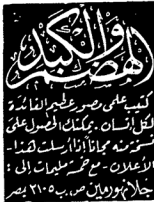 الهضم
والكبد
كتيب علمى مصور عظيم الفائدة
لكل إنسان . يمكنك الحصول على
نسخة منه مجاناً إذا أرسلت هذا
الأعلان - مع خمسة مليمات إلى :
جلام هورمين ص . ب ٢١٠٥ بمصر